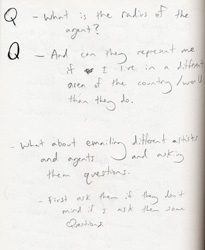 Q - What is the radius of the
agent?
Q - And can they represent me
if I live in a different
area of the country/world
than they do.
- What about emailing different artists
and agents and asking
them questions.
- First ask them if they don't
mind if I ask them some
Questions.